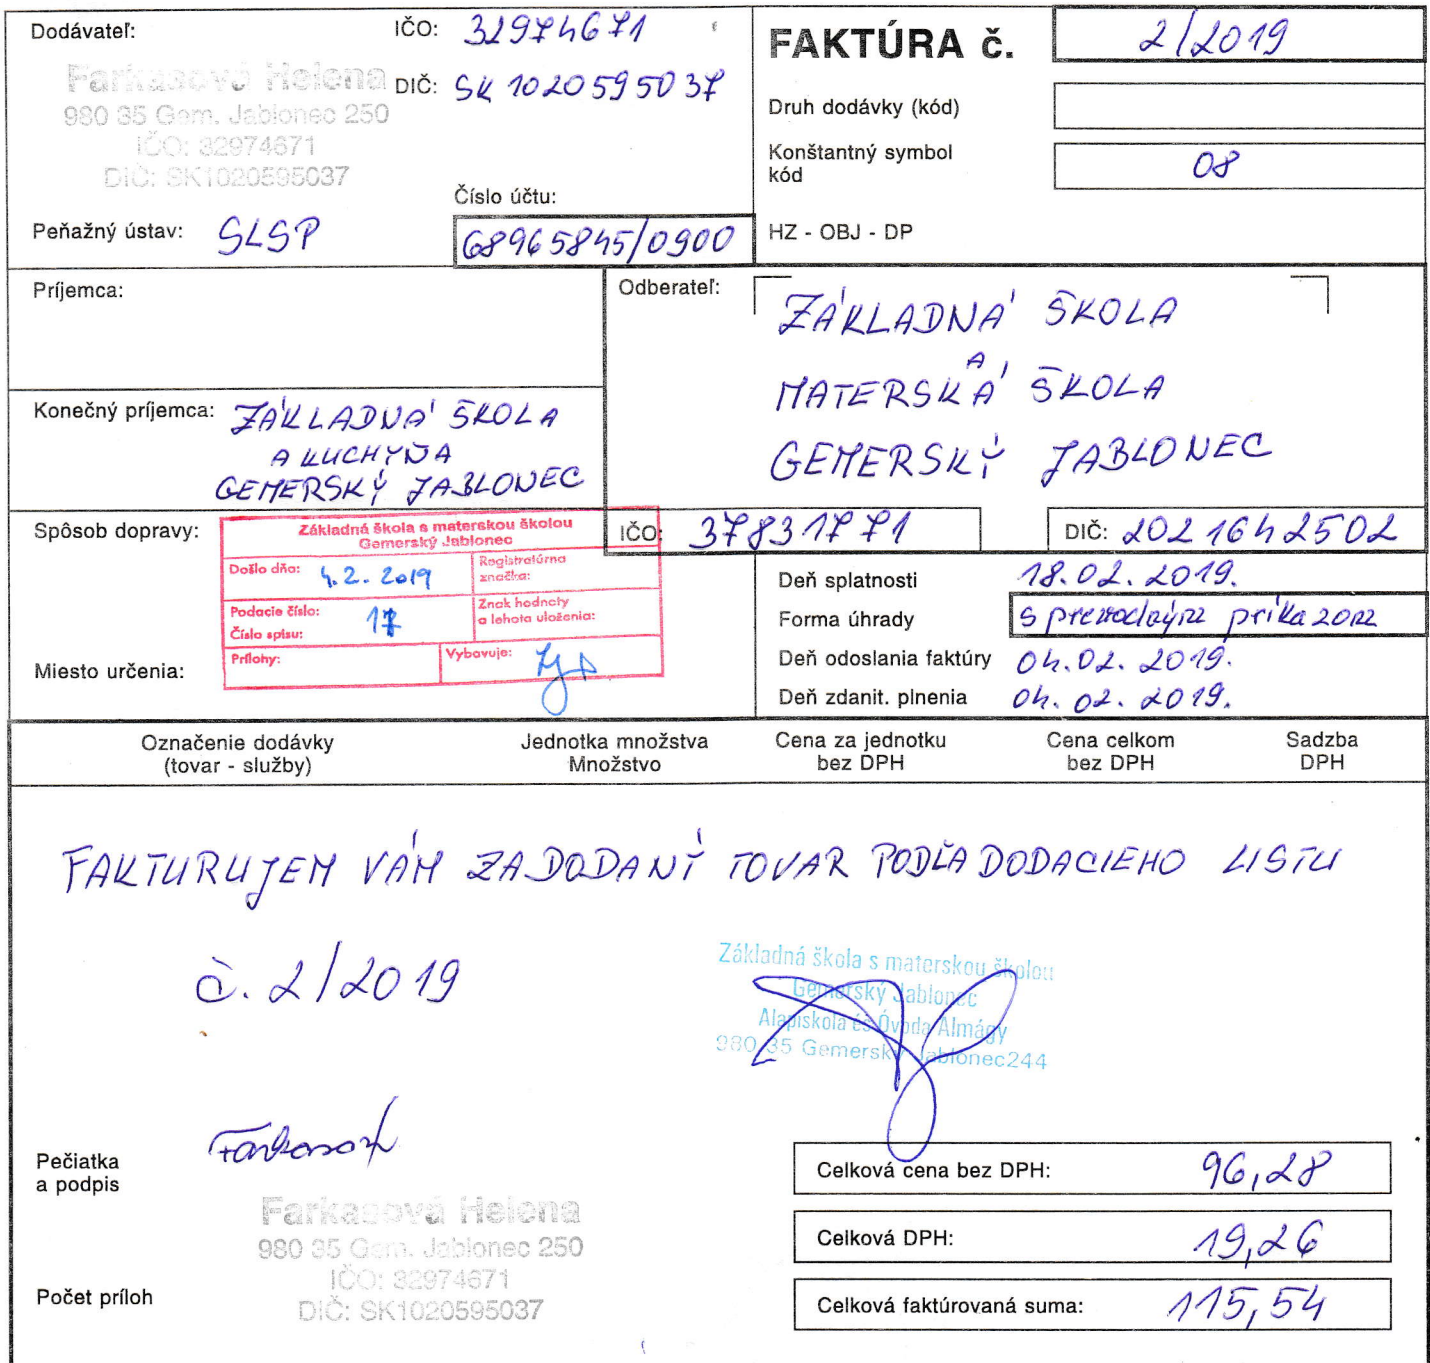 Dodávateľ:
IČO: 32974671
Farkasová Helena
DIČ: SK 1020595037
980 35 Gem. Jablonec 250
IČO: 32974671
DIČ: SK1020595037
Peňažný ústav: SLSP
Číslo účtu:
68965845/0900
FAKTÚRA č. 2/2019
Druh dodávky (kód)
Konštantný symbol
kód
08
HZ - OBJ - DP
Príjemca:
Odberateľ:
ZÁKLADNÁ ŠKOLA
A
MATERSKÁ ŠKOLA
GEMERSKÝ JABLONEC
Konečný príjemca: ZÁKLADNÁ ŠKOLA
A KUCHYŇA
GEMERSKÝ JABLONEC
IČO: 37831771
DIČ: 2021642502
Spôsob dopravy:
Základná škola s materskou školou
Gemerský Jablonec
Došlo dňa: 4.2.2019
Registratúrna
značka:
Podacie číslo:
Číslo spisu:
17
Znak hodnoty
a lehota uloženia:
Prílohy:
Vybavuje:
Miesto určenia:
Deň splatnosti 18.02.2019.
Forma úhrady s prevodným príkazom
Deň odoslania faktúry 04.02.2019.
Deň zdanit. plnenia 04.02.2019.
Označenie dodávky
(tovar - služby)
Jednotka množstva
Množstvo
Cena za jednotku
bez DPH
Cena celkom
bez DPH
Sadzba
DPH
FAKTURUJEM VÁM ZA DODANÝ TOVAR PODĽA DODACIEHO LISTU
č. 2/2019
Základná škola s materskou školou
Gemerský Jablonec
Alapiskola és Óvoda Almágy
980 35 Gemerský Jablonec244
Pečiatka
a podpis
Farkasová
Farkasová Helena
980 35 Gem. Jablonec 250
IČO: 32974671
DIČ: SK1020595037
Počet príloh
Celková cena bez DPH: 96,28
Celková DPH: 19,26
Celková faktúrovaná suma: 115,54